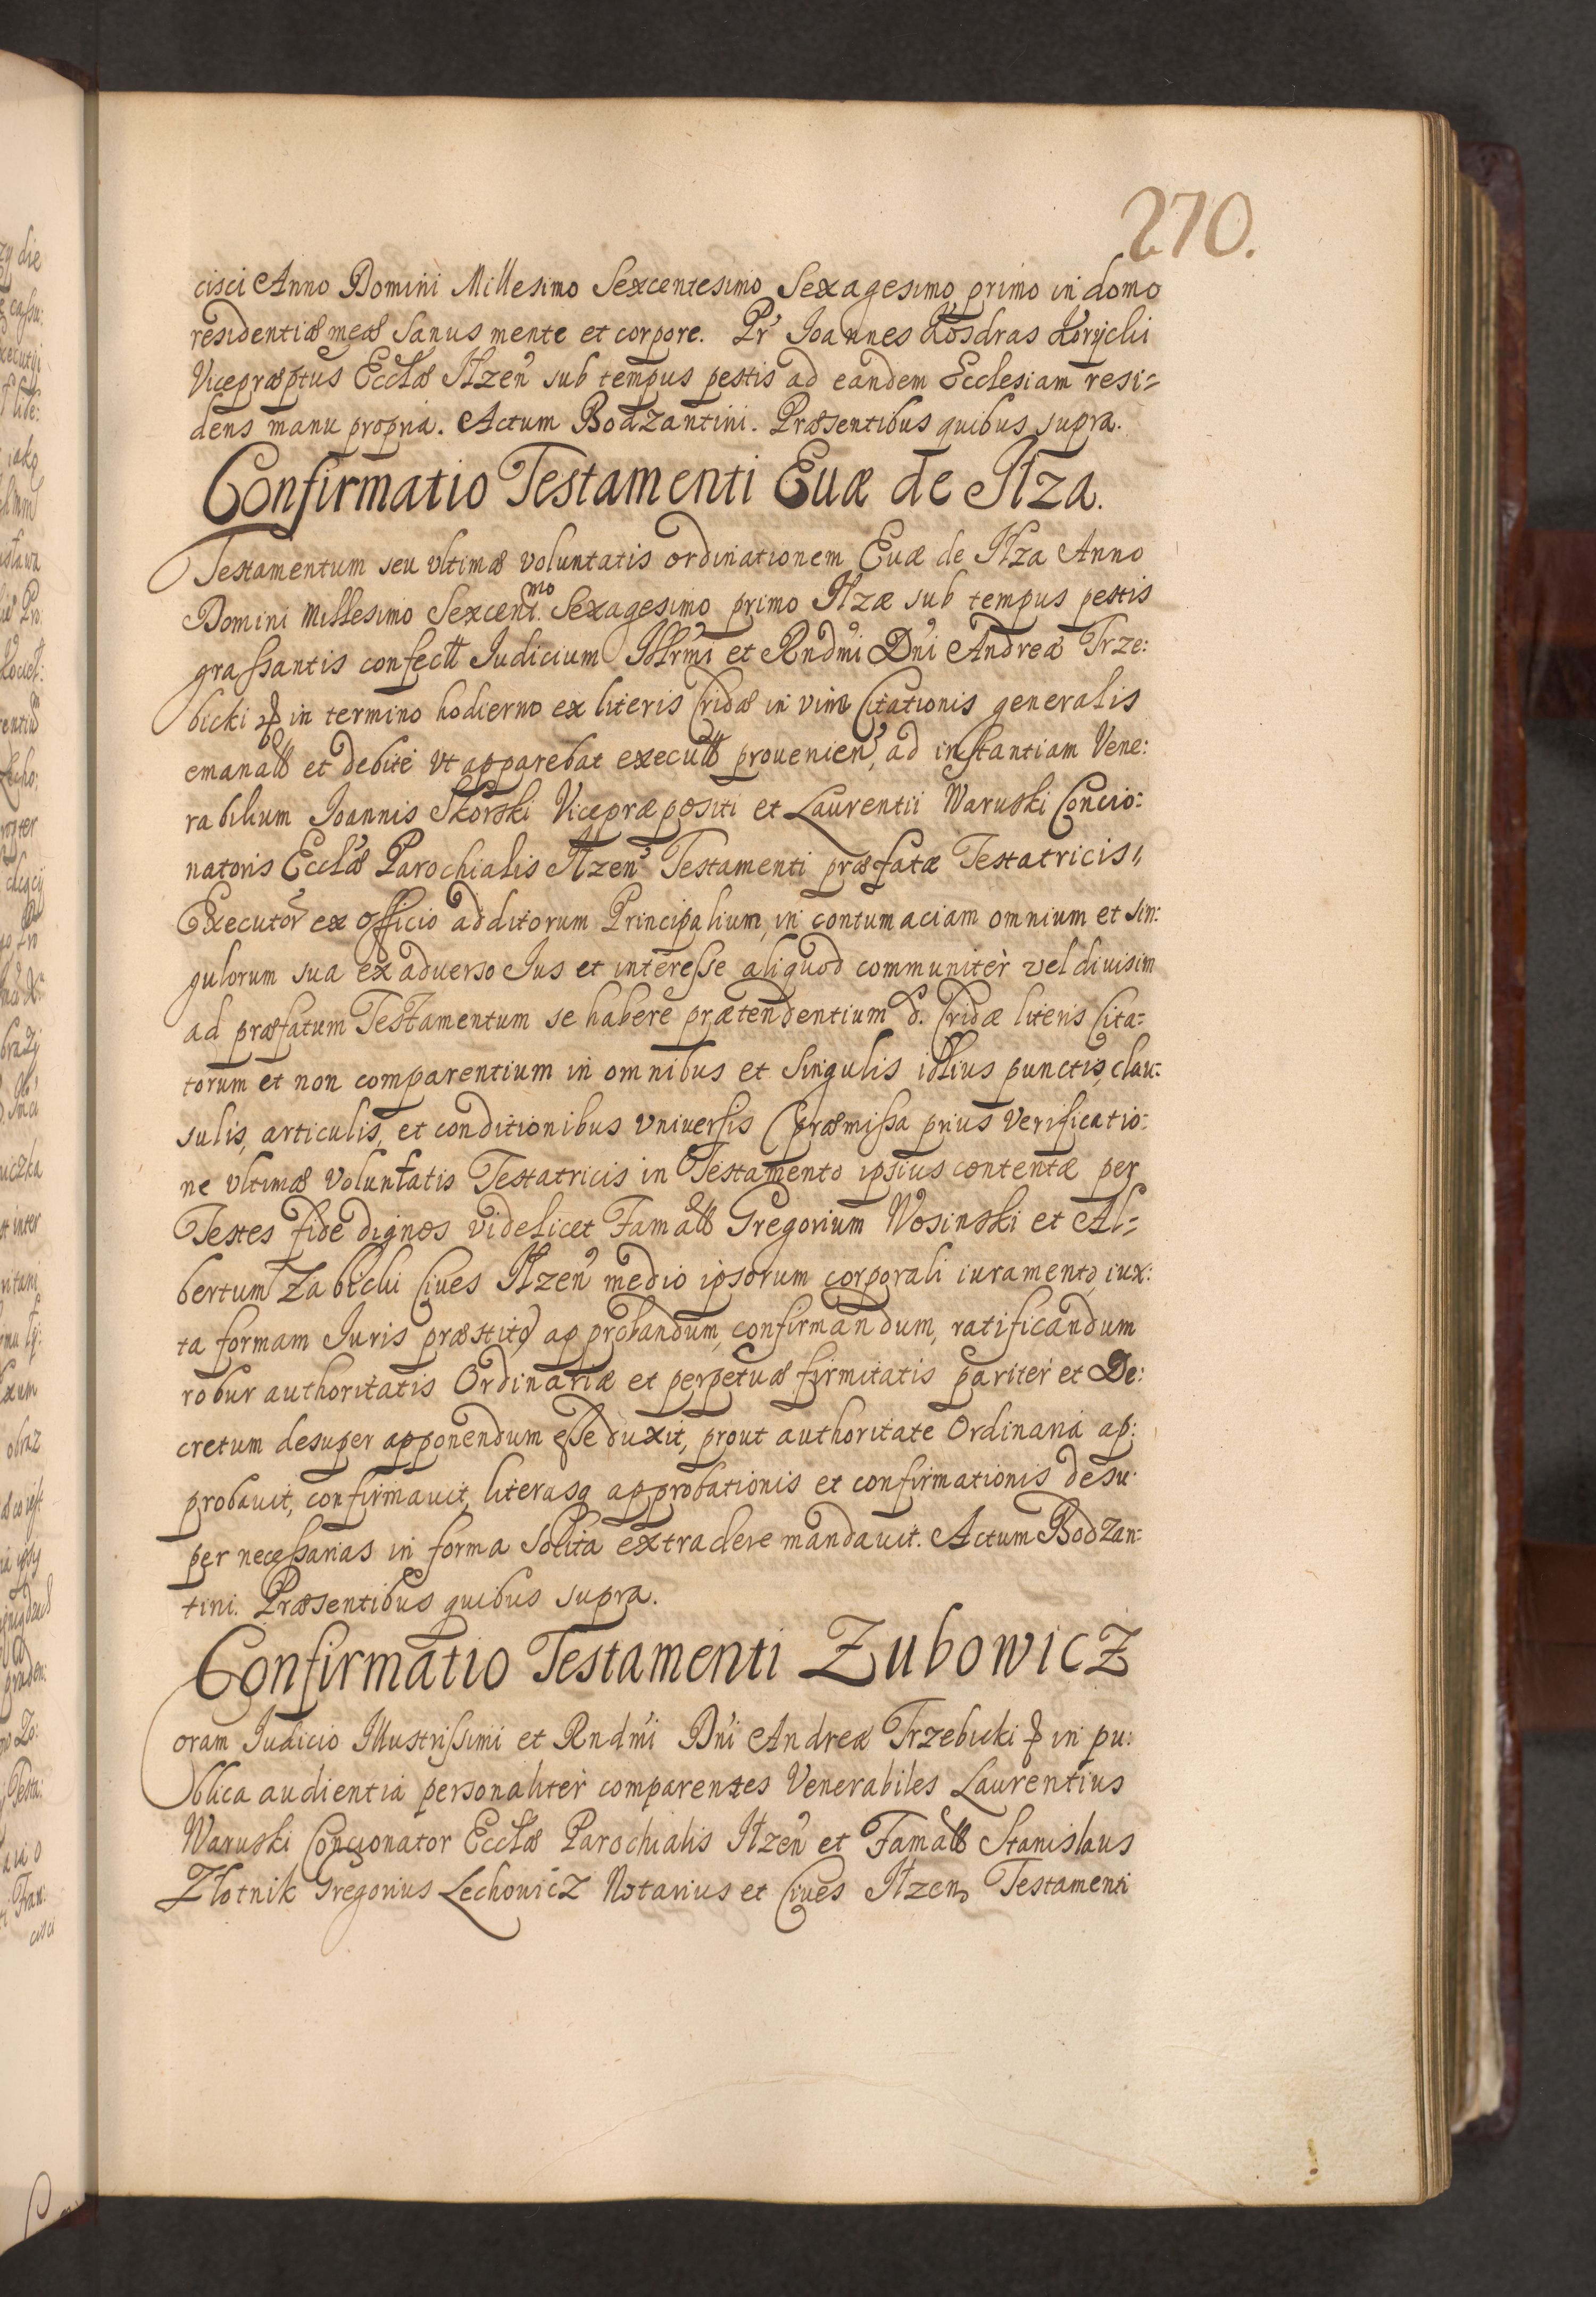 270.
cisci Anno Domini Millesimo Sexcentesimo Sexagesimo primo in domo
residentiæ meæ Sanus mente et corpore. Pr Joannes Kosdras Korycki
Vicepræptus Ecclæ Ilzen sub tempus pestis ad eandem Ecclesiam resi=
dens manu propria. Actum Bodzantini. Præsentibus quibus supra.
Confirmatio Testamenti Euæ de Ilza.
Testamentum seu vltimæ voluntatis ordinationem Euæ de Ilza Anno
Domini Millesimo Sexcent.mo Sexagesimo primo Ilzæ sub tempus pestis
graſsantis confectt Judicium Illrmi et Rndmi Dni Andreæ Trze:
bicki in termino hodierno ex literis Cridæ in vim Citationis generalis
emanatt et debite vt apparebat executt prouenien, ad instantiam Vene:
rabilium Joannis Skorski Vicepræpositi et Laurentii Waruski Concio:
natoris Ecclæ Parochialis Ilzen Testamenti præfatæ Testatricis
Executor ex officio additorum Principalium, in contumaciam omnium et sin:
gulorum sua ex aduerso Jus et intereſse aliquod communiter vel diuisim
ad præfatum Testamentum se habere prætendentium d. Cridæ literis Cita=
torum et non comparentium in omnibus et Singulis illius punctis, clau:
sulis, articulis, et conditionibus vniuersis (præmiſsa prius Verificatio:
ne vltimæ Voluntatis Testatricis in Testamento ipsius contentæ per
Testes fide dignos videlicet Famatt Gregorium Wosinski et Al=
bertum Zabicki Ciues Ilzen medio ipsorum corporali iuramento, iux:
ta formam Juris præstito) approbandum, confirmandum, ratificandum
robur authoritatis Ordinariæ et perpetuæ firmitatis pariter et De:
cretum desuper apponendum eſse duxit, prout authoritate Ordinaria ap:
probauit, confirmauit, literasq approbationis et confirmationis desu:
per neceſsarias in forma Solita extradere mandauit. Actum Bodzan:
tini. Præsentibus quibus supra.
Confirmatio Testamenti Zubowicz
Coram Judicio Illustriſsimi et Rndmi Dni Andreæ Trzebicki in pu:
blica audientia personaliter comparentes Venerabiles Laurentius
Waruski Concionator Ecclæ Parochialis Ilzen et Famatt Stanislaus
Złotnik Gregorius Lechowicz Notarius et Ciues Ilzen, Testamenti